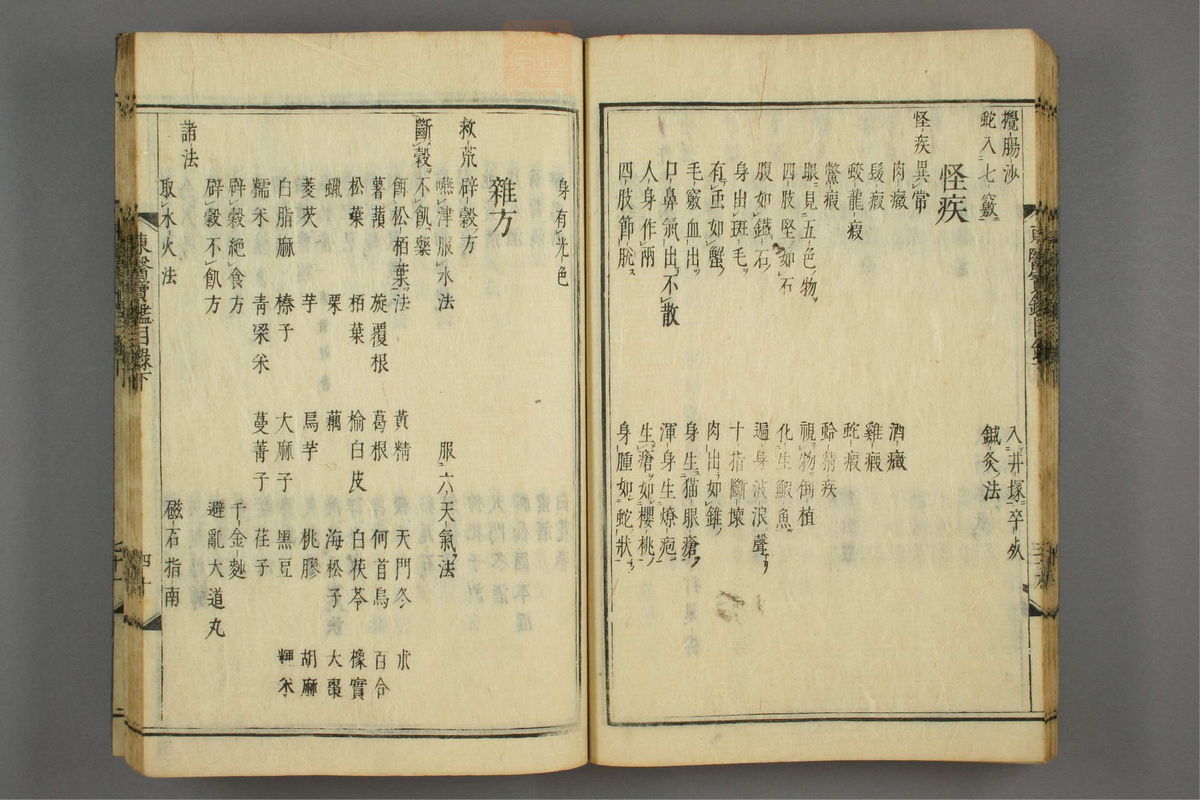 攪腸沙 入井塚卒死
蛇入七竅 鍼灸法
怪疾
怪疾異常
肉癥 酒癥
髮瘕 雞瘕
蛟龍瘕 蛇瘕
鱉瘕 蛤精疾
眼見五色物 視物倒植
四肢堅如石 化生鰕魚
腹如鐵石 遍身波浪聲
身出斑毛 十指斷壞
有虫如蟹 肉出如錐
毛竅血出 身生猫眼瘡
口鼻氣出不散 渾身生燎疱
人身作兩 生瘡如櫻桃
四肢節脫 身腫如蛇狀
身有光色
雜方
救荒辟穀方
嚥津服水法 服六天氣法
斷穀不飢藥
餌松栢葉法 黃精 天門冬 朮
薯蕷 旋覆根 葛根 何首烏 百合
松葉 栢葉 榆白皮 白茯苓 橡實
蠟 栗 藕 海松子 大棗
菱芡 芋 烏芋 桃膠 胡麻
白脂麻 榛子 大麻子 黑豆 稗米
糯米 青梁米 蔓菁子 荏子
辟穀絕食方 千金麨
辟穀不飢方 避亂大道丸
諸法
取水火法 磁石指南
東醫寶鑑目錄下
四十